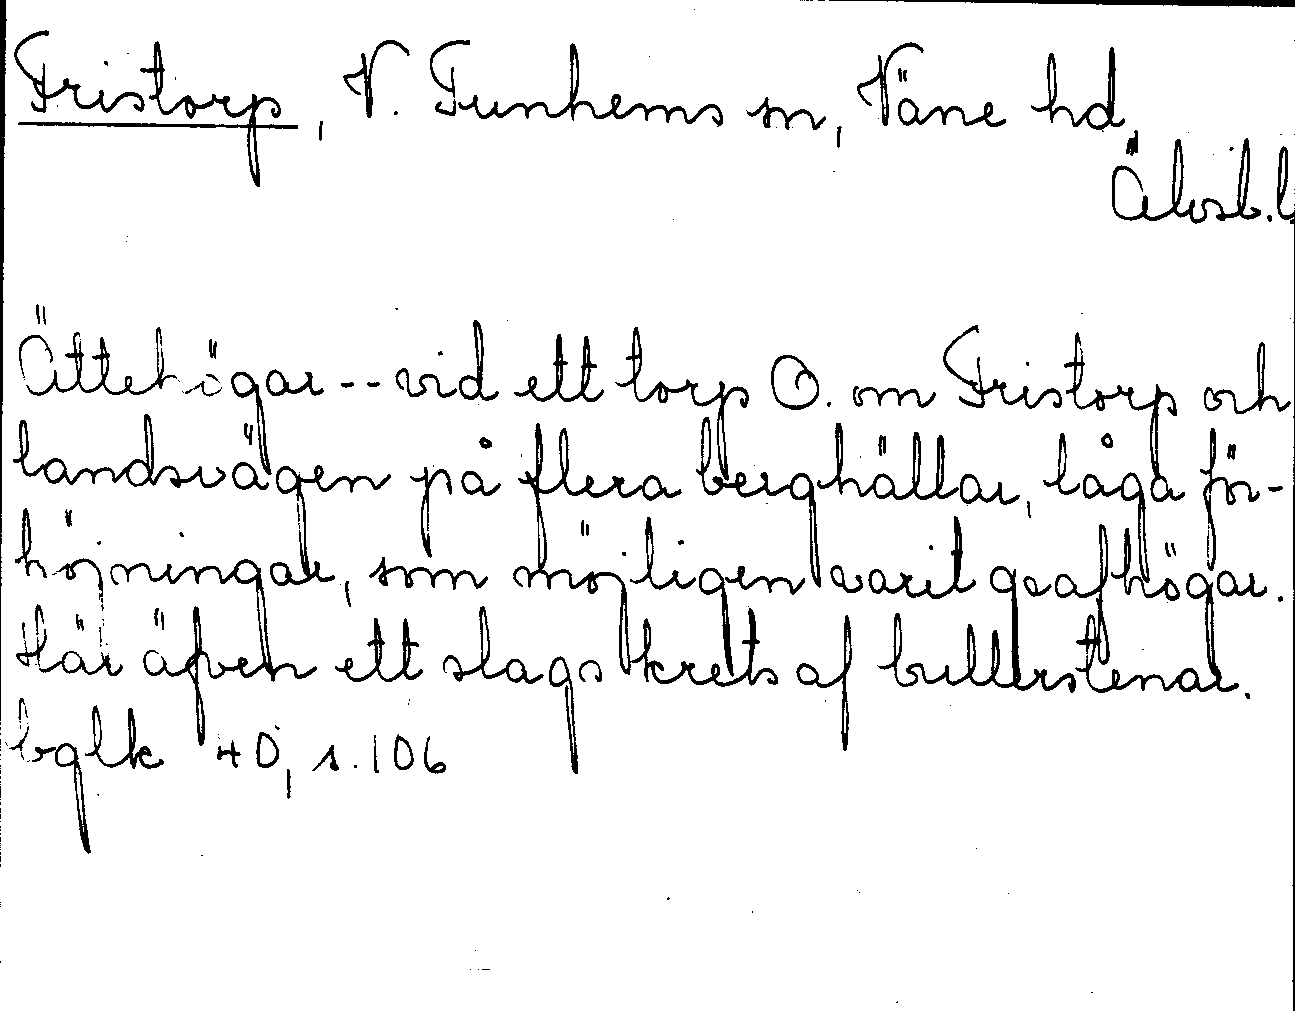 Fristorp, V. Tunhems sn, Väne hd,
Älvsb.l
Ättehögar -- vid ett torp O. om Fristorp och
landsvägen på flera berghällar, låga för-
höjningar, som möjligen varit grafhögar.
Här äfven ett slags krets af bullerstenar.
bglk 40, s. 106